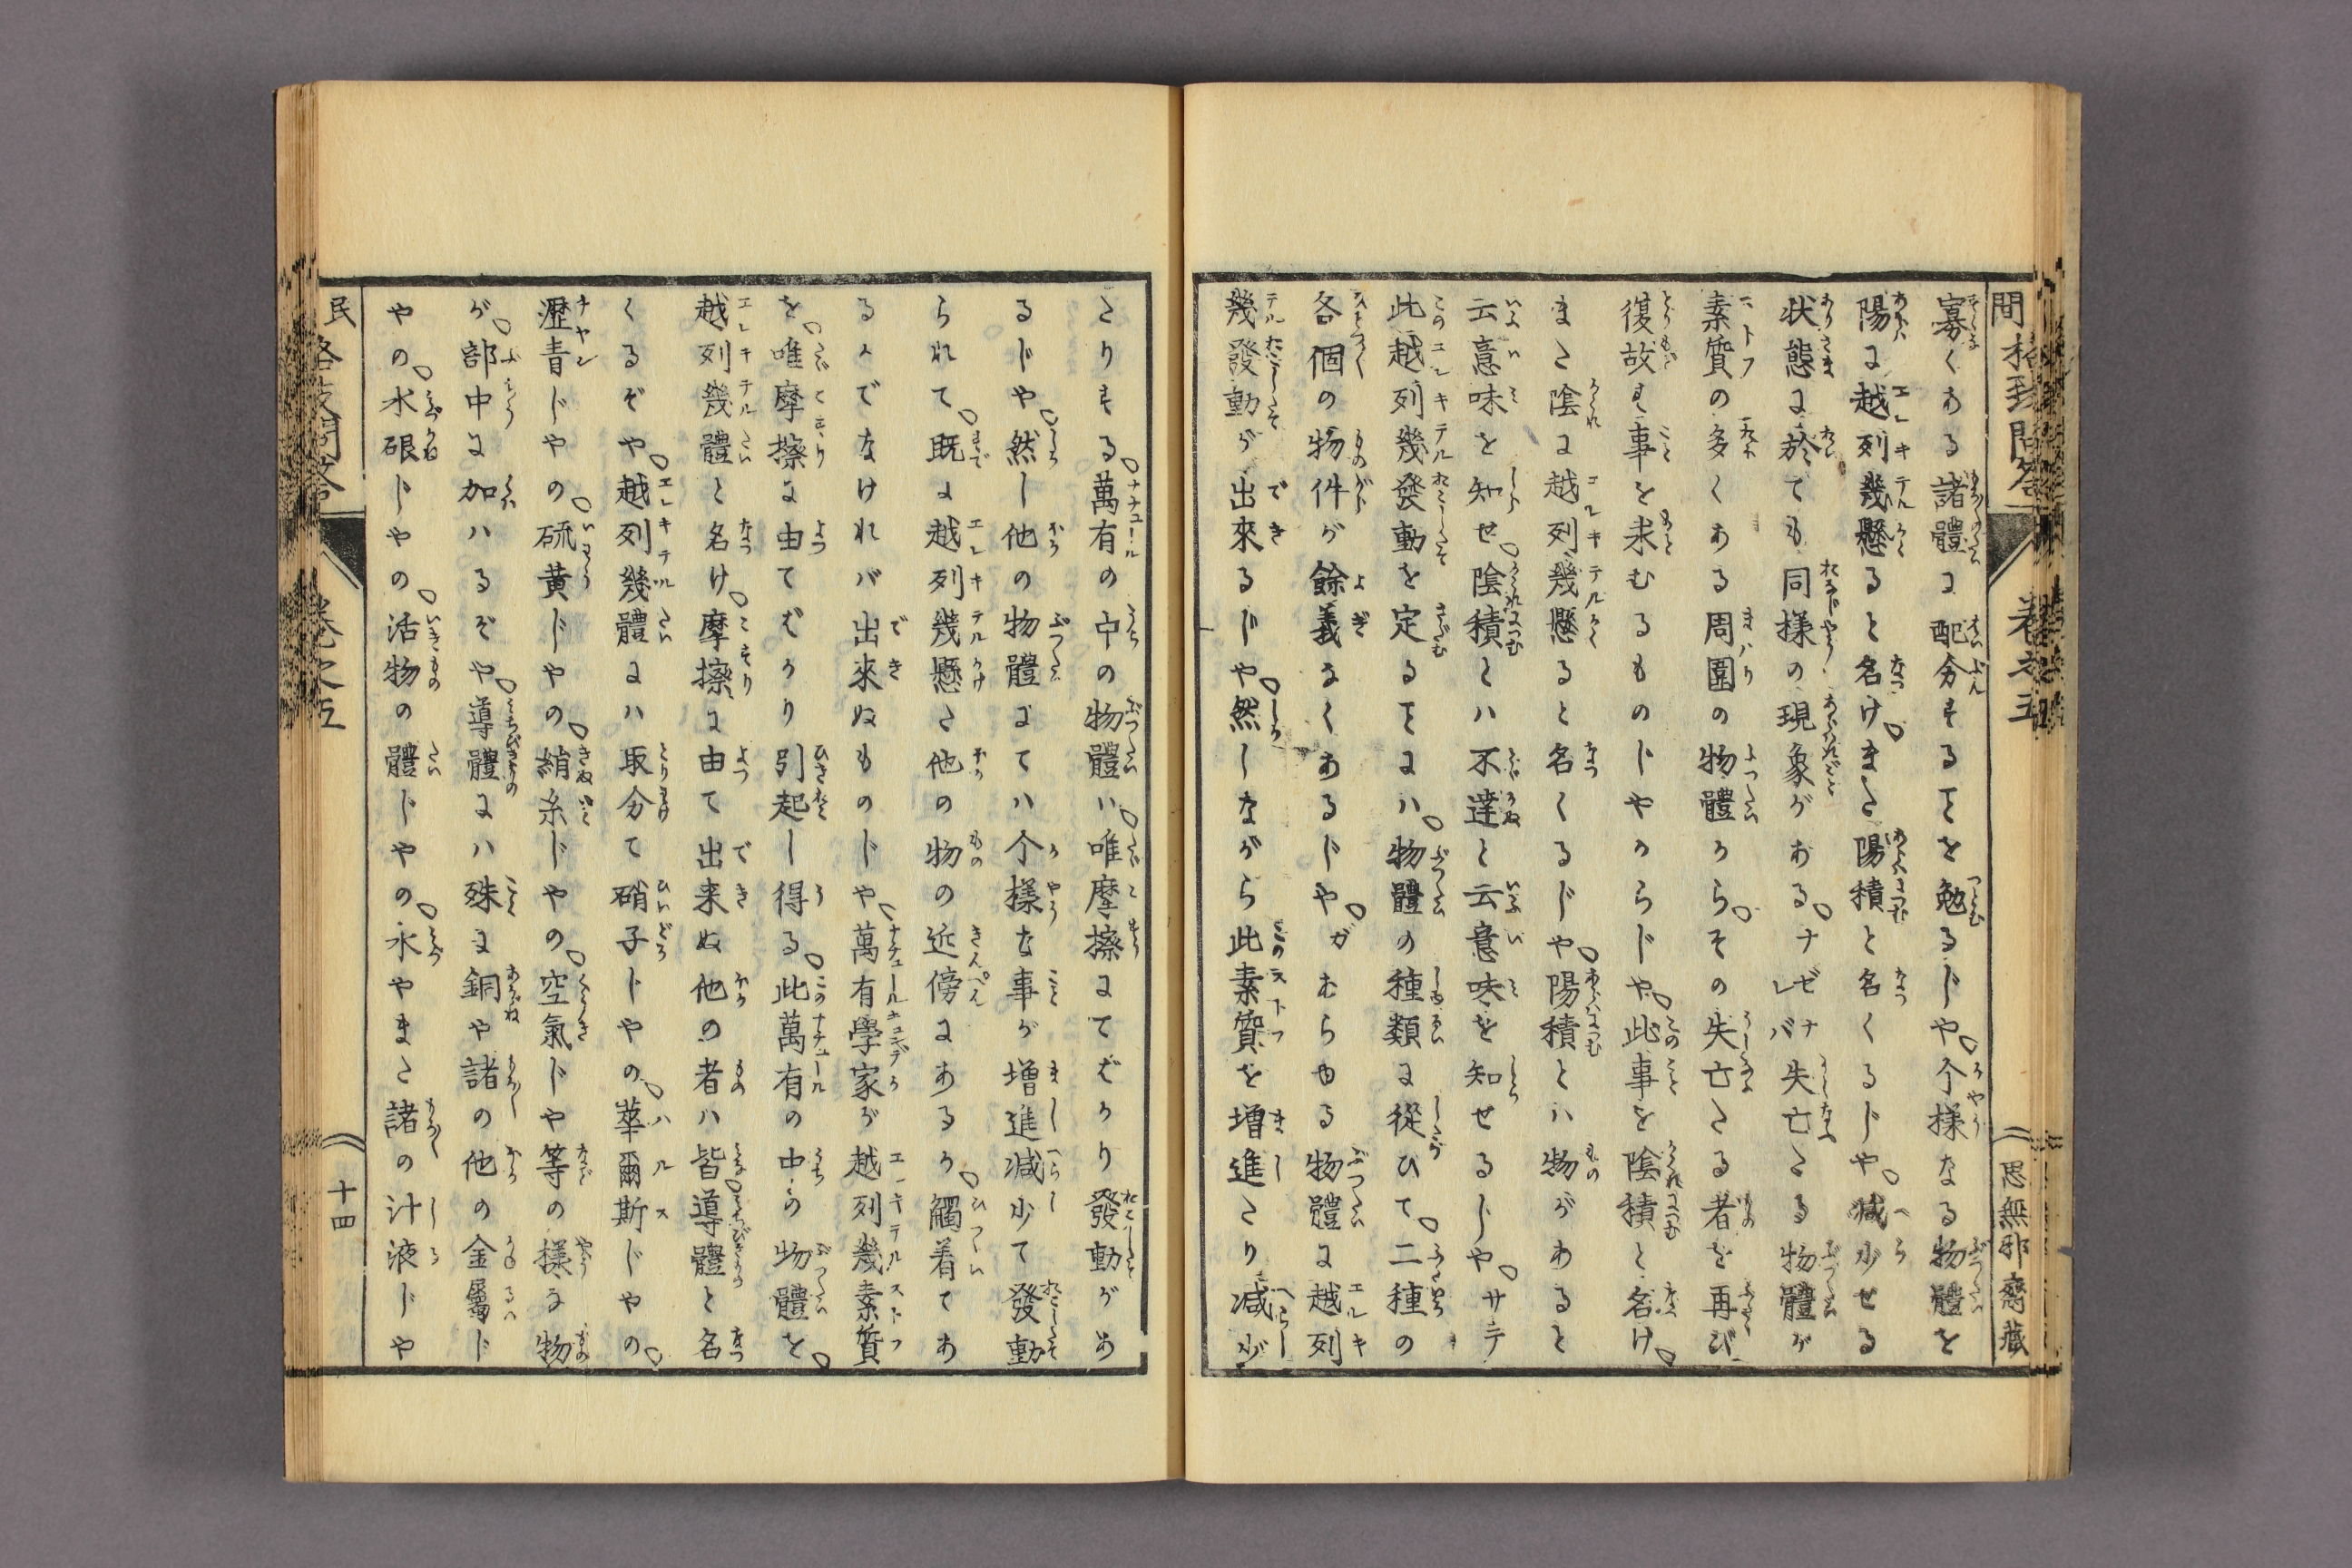 寡くある諸體に配分するをを勉るじや个様なる物體を
陽に越列幾懸ると名けまた陽積と名くるじや減少せる
状態に於ても同様の現象がおるナゼナレバ失亡たる物體が
素質の多くある周圍の物體からその失亡たる者を再び
復故す事を求むるものじやからじや此事を陰積と名け
また陰に越列幾懸ると名くるじや陽積とハ物があると
云意味を知せ陰積とハ不達と云意味を知せるじやサテ
此越列幾發動を定るをにハ物體の種類に従ひて二種の
各個の物件が餘義なくあるじやガあらゆる物體に越列
幾發動が出來るじや然しながら此素質を増進たり減少
たりする萬有の中の物體ハ唯摩擦にてばかり發動があ
るじや然し他の物體にてハ个様な事が増進減少て發動
られて既に越列幾懸た他の物の近傍にあるか觸着てあ
るかでなければ出來ぬものじや萬有學家が越列幾素質
を唯摩擦に由てばかり引起し得る此萬有の中の物體を
越列幾體と名け摩擦に由て出来ぬ他の者ハ皆導體と名
くるぞや越列幾體にハ取分て硝子じやの華爾斯じやの
瀝青じやの硫黄じやの絹糸じやの空氣じや等の様な物
が部中に加ハるぞや導體にハ殊に銅や諸の他の金屬じ
やの水硍じやの活物の體じやの水やまた諸の汁液じや
民 格致問答 巻之五 十四
間格致問答 巻之五 思無邪齋藏